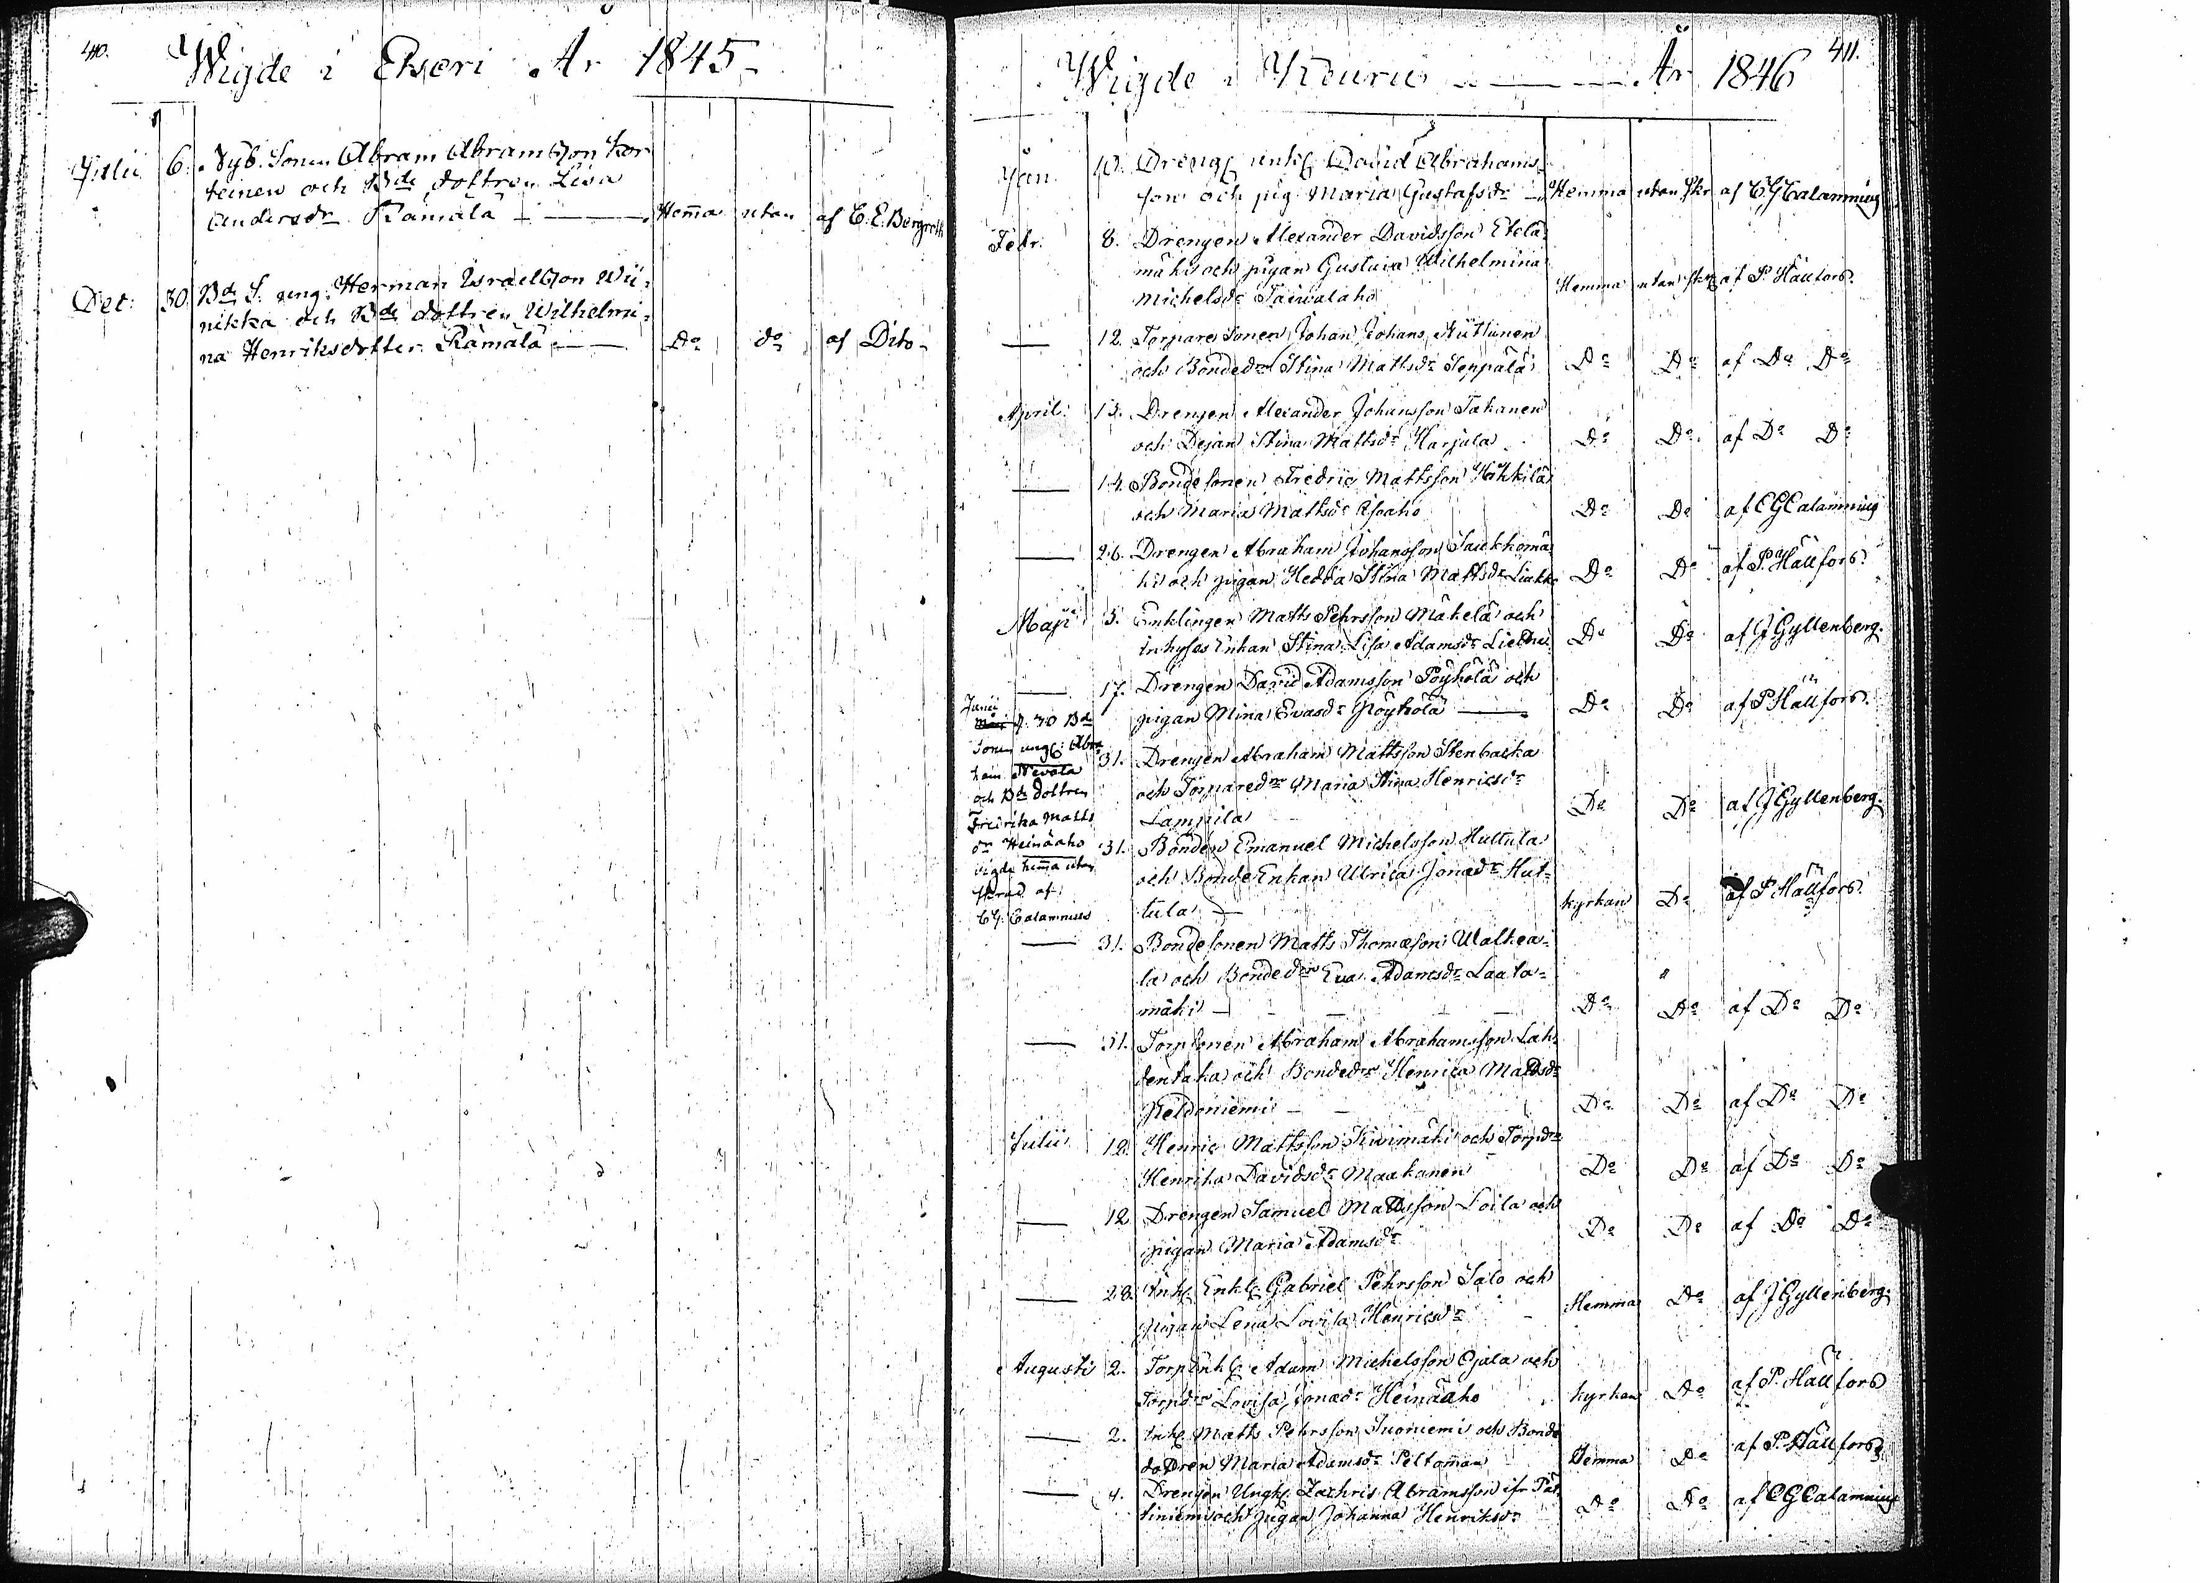 410.
Wigde i Etseri År 1845
Julii 6. Nyb. Sonen Abram Abramsson Kor
teinen och Bde dottren Lisa
Andersdr Rämälä — Hem̄a utan af C. E. Bergroth
Dec: 30. Bd S. ung. Herman Israelsson Wii-
nikka och Bde dottren Wilhelmi-
na Henriksdotter Rämälä — Do do af Dito
411.
Wigde i Keuru — År 1846
Jan. 10. Dreng Enkl David Abrahams-
son och pig. Maria Gustafsdr — Hemma utan skr af C G Calamnius
Febr. 8. Drengen Alexander Davidsson Etelä-
mäki och pigan Gustava Wilhelmina
Michelsdr Taiwalaho Hemma utan skr af P. Hällfors.
— 12. Torpare Sonen Johan Johans.
och Bondedr Stina Mattsdr Seppälä Do Do af Do Do
April. 13. Drengen Alexander Johansson Takanen
och Dejan Stina Mattsdr Harjula Do Do af Do Do
— 14. Bondesonen Fredric Mattsson
och Maria Mattsdr Do Do af C G Calamnius
— 26. Drengen Abraham Johansson Saukkomä-
ki och pigan Hedda Stina Mattsdr Do Do af P. Hällfors.
Maji 3. Enklingen Matts Pehrsson Mäkelä och
inhyses Enkan Stina Lisa Adamsdr Do Do af J Gyllenberg.
— 17. Drengen David Adamsson Pöyhölä och
pigan Mina Evasdr Pöyhölä — Do Do af P Hällfors.
Junii
d. 30 Bd
Sonen ungk: Abra
ham Nevala
och Bde dottren
Fredrika Matts
dr Heinäaho
vigde hem̄a utan
skrud af
C G. Calamnius
31. Drengen Abraham Mattsson Stenbacka
och Torparedr Maria Stina Henricsdr
Lampila Do Do af J Gyllenberg.
31. Bonden Emanuel Michelsson Huttula
och BondeEnkan Ulrica Jonædr Hut-
tula — kyrkan Do af P Hällfors.
— 31. Bondesonen Matts Thomæson Walkea-
la och Bondedr Eva Adamsdr Laata-
mäki — Do Do af Do Do
— 31. Torpsonen Abraham Abrahamsson Lah-
dentaka och Bondedr Henrica Mattsdr
Keldoniemi — Do Do af Do Do
Julii 12. Henric Mattsson Kivimäki och Torpdr
Henrika Davidsdr Maakanen Do Do af Do Do
— 12. Drengen Samuel Mattsson Loila och
pigan Maria Adamsdr Do Do af Do Do
— 28. Inh. Enkl Gabriel Pehrsson Salo och
pigan Lena Lovisa Henricsdr — Hemma Do af J Gyllenberg.
Augusti 2. TorpEnkl Adam Michelsson Ojala och
Torpdr Lovisa Jonædr Heinäaho kyrkan Do af P. Hällfors
— 2. Inh. Matts Pehrsson Suoniemi och Bonde
dottren Maria Adamsdr Peltoman Hemma Do af P. Hällfors
— 4. Drengen Ungk. Zachris Abramsson ifr Pät-
tiniemi och Pigan Johanna Henriksdr Do Do af C G Calamnius